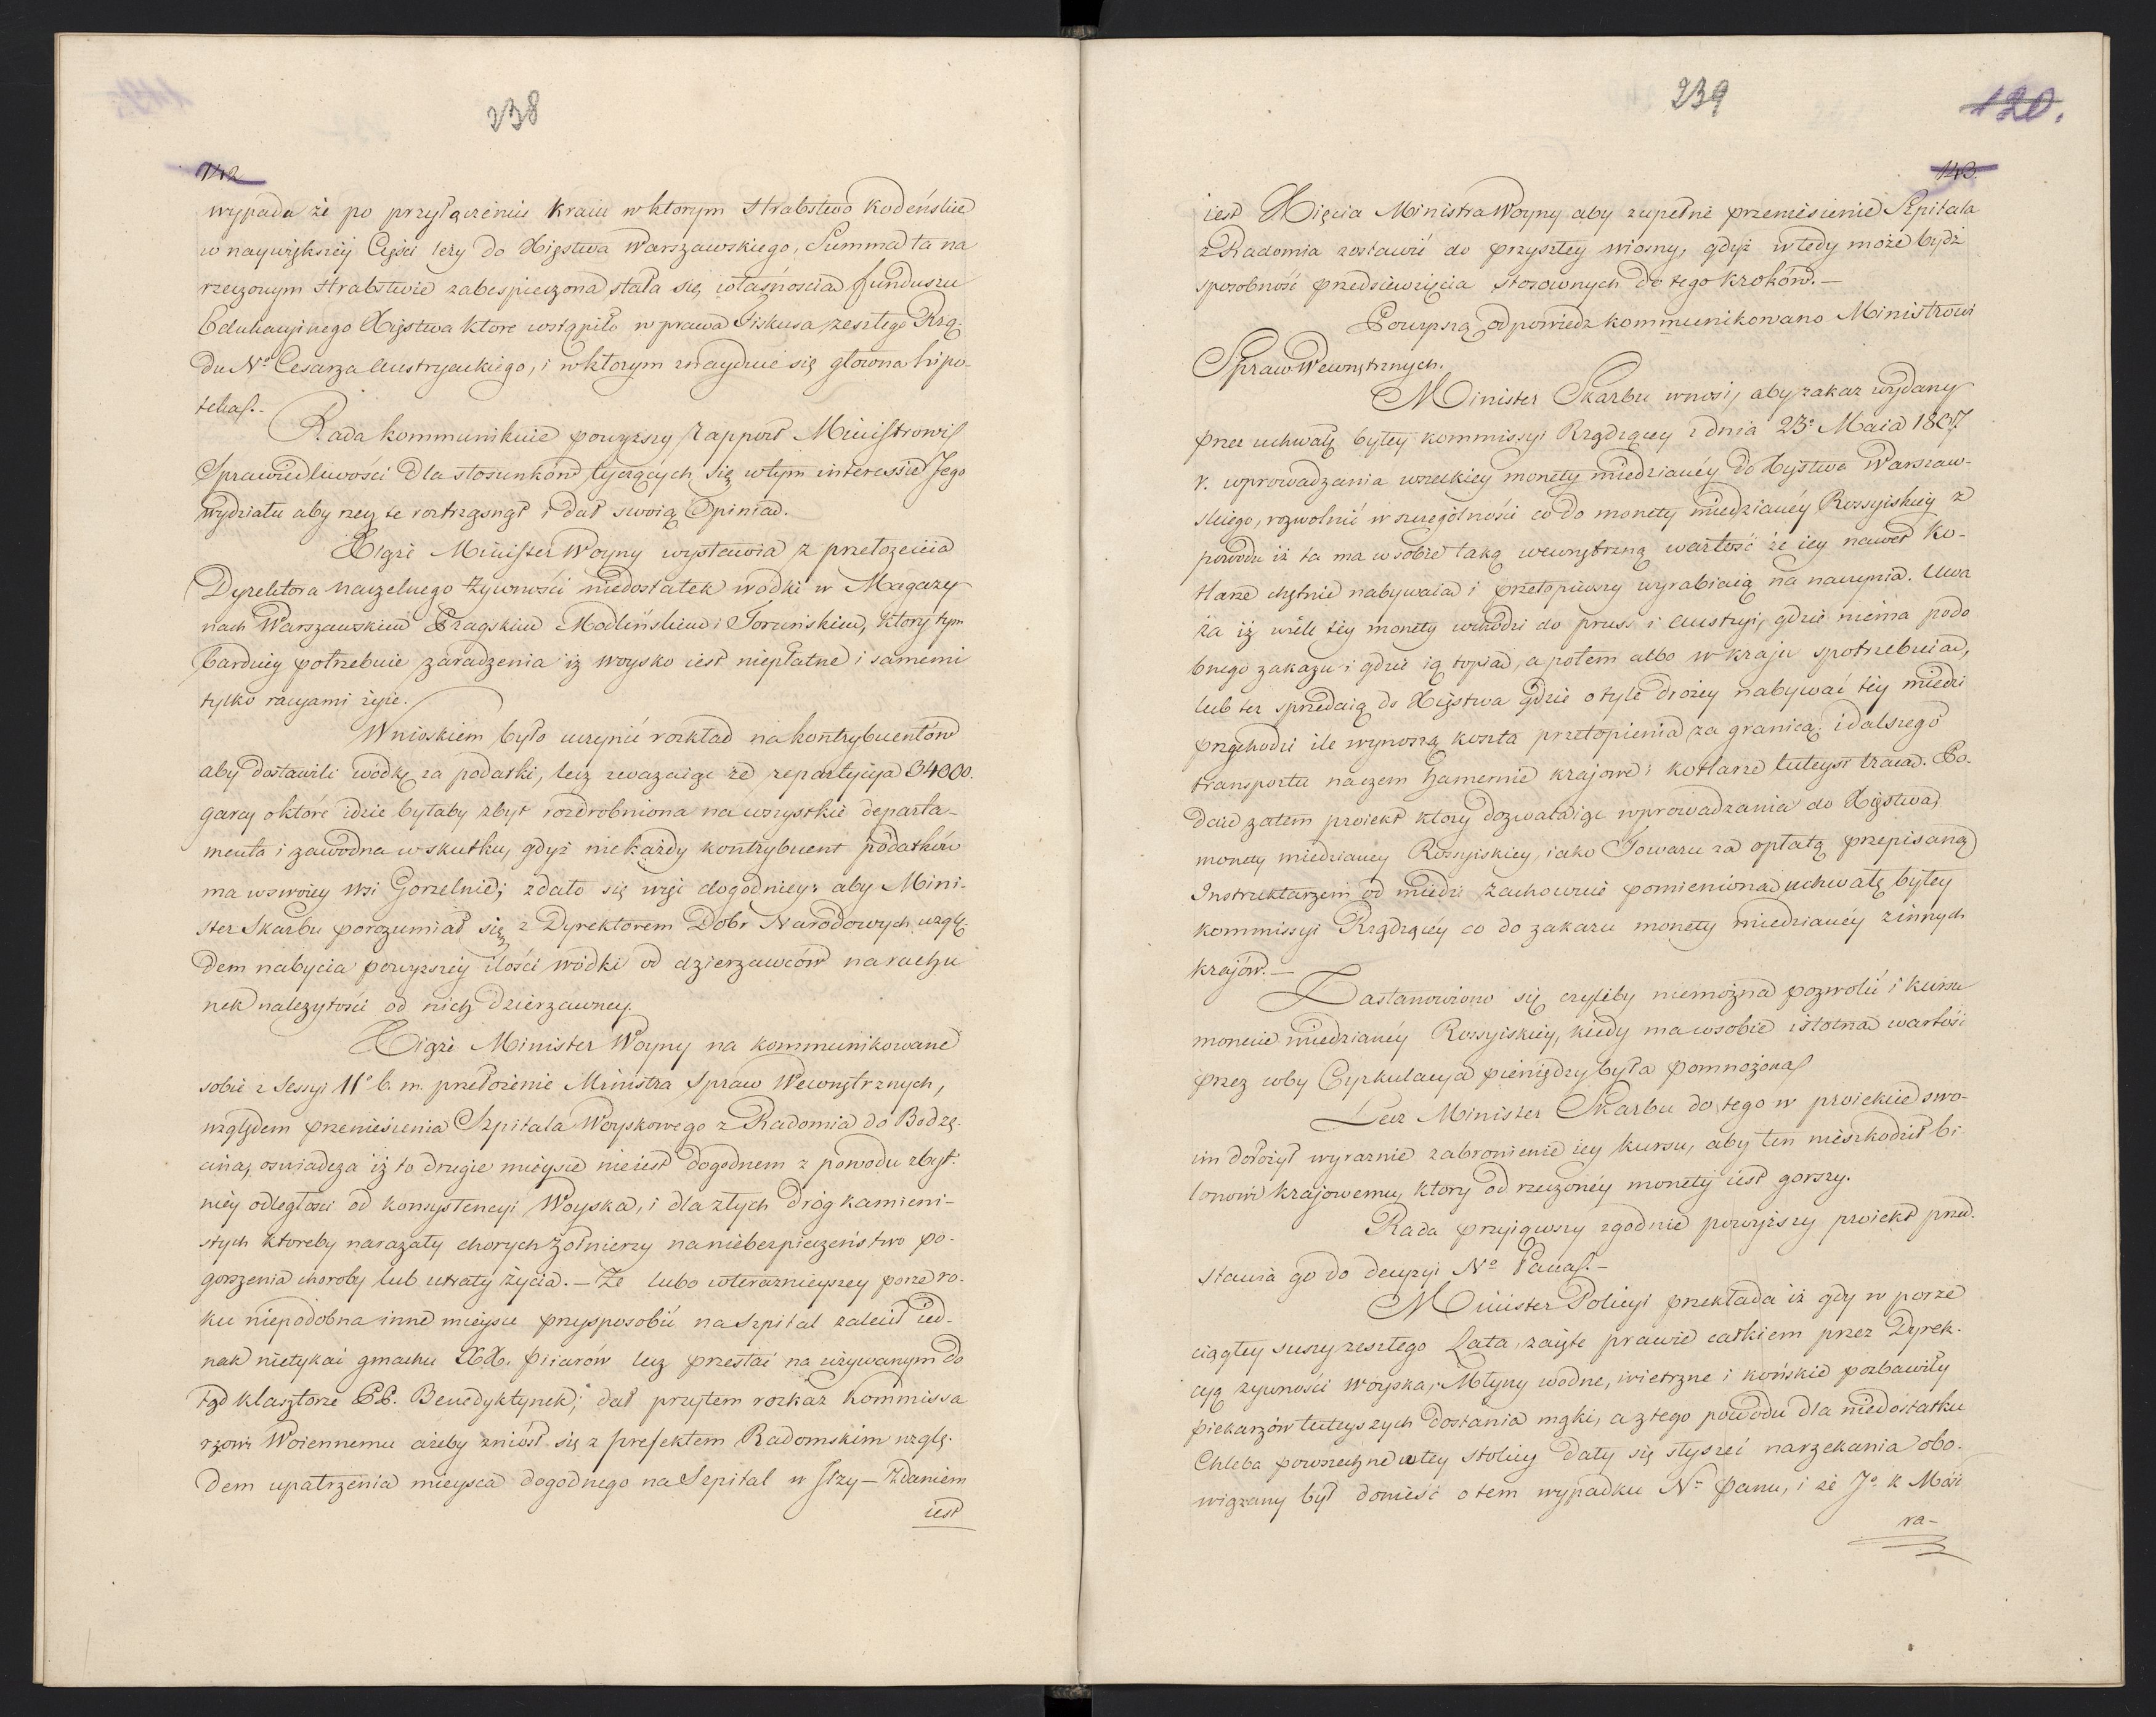 238
142
wypada że po przyłączeniu kraiu w ktorym Hrabstwo Kodeńskie
w naywiększéy Części leży do Xięstwa Warszawskiego, Summa ta na
rzeczonym Hrabstwie zabespieczona stała się własnoscią funduszu
Edukacyinego Xięstwa ktore wstąpiło w prawa Fiskusa zeszłego Rzą-
du No Cesarza Austryackiego, i w ktorym znayduie się głowna hipo-
teka.-
Rada kommunikuie powyzszy rapport Ministrowi
Sprawiedliwości dla stosunków tyczących się w tym interessie Jego
wydziału aby rzecz te roztrząsnął i dał swoią Opinią.
Xiąże Minister Woyny wystawia z przełożenia
Dyrektora naczelnego żywności niedostatek wodki w Magazy-
nach Warszawskim Pragskim Modlińskim i Toruńskim, ktory tym
bardziey potrzebuie zaradzenia iż woysko iest niepłatne i samemi
tylko racyami żyie.
Wnioskiem było uczynić rozkład na kontrybuentów
aby dostawili wódkę za podatki, lecz zważaiąc że repartycya 34000.
garcy o które idzie byłaby zbyt rozdrobniona na wszystkie departa-
menta i zawodna w skutku, gdyż nie każdy kontrybuent podatków
ma w swoiey wsi Gorzelnie; zdało się więc dogodniey aby Mini-
ster Skarbu porozumiał się z Dyrektorem Dobr Narodowych wzglę-
dem nabycia powyzszéy ilości wódki od dzierzawców na rachu
nek należytości od nich dzierzawney.
Xiąże Minister Woyny na kommunikowane
sobie z Sessyi 11o b. m. przełożenie Ministra Spraw Wewnętrznych,
względem przeniesienia Szpitala Woyskowego z Radomia do Bodzę-
cina, oswiadcza iż to drugie mieysce nieiest dogodnem z powodu zbyt-
niéy odległosci od konsystencyi Woyska, i dla złych dróg kamieni-
stych ktoreby narazały chorych żołnierzy na niebezpieczeństwo po-
gorszenia choroby lub utraty życia. - Ze lubo w terazniejszey porze ro-
ku niepodobna inne mieysce przysposobić na Szpital zalecił ied-
nak nietykać gmachu XX. Piiarów lecz przestać na używanym do
tąd klasztorze PP. Benedyktynek; dał przytem rozkaz Kommissa
rzowi Woiennemu ażeby zniósł się z prefektem Radomskim wzglę-
dem upatrzenia mieysca dogodnego na Szpital w Iłzy - Zdaniem
iest
239
120.
143.
iest Xięcia Ministra Woyny aby zupełne przeniesienie Szpitala
z Radomia zostawić do przyszłey wiosny, gdyż wtedy może bydź
sposobność przedsięwzięcia stosownych do tego kroków. -
Powyzszą odpowiedz kommunikowano Ministrowi
Spraw Wewnętrznych.
Minister Skarbu wnosi, aby zakaz wydany
przez uchwałę byłey kommissyi Rządzącey z dnia 23o Maia 1807
r. wprowadzania wszelkiey monety miedzianéy do Xięstwa Warszaw-
skiego, rozwolnić w szczególności co do monety miedzianéy Rossyiskiey z
powodu iż ta ma w sobie taką wewnętrzną wartość że iey nawet ko-
tlarze chętnie nabywaią i przetopiwszy wyrabiaią na naczynia. Uwa
ża iż wiele téy monety wchodzi do pruss i Austryi, gdzie niema podo
bnego zakazu i gdzie ią topią, a potem albo w kraju spotrzebuią,
lub też sprzedaią do Xięstwa gdzie o tyle drożey nabywać téy miedzi
przychodzi ile wynoszą koszta przetopienia za granicą; i dalszego
transportu na czem hamernie krajowe i kotlarze tuteysi tracą. Po-
daie zatem proiekt ktory dozwalaiąc wprowadzania do Xięstwa,
monety miedzianey Rossyiskiey, iako Towaru za opłatą przepisaną
Instruktarzem od miedzi zachowuie pomienioną uchwałę byłey
kommissyi Rządzącéy co do zakazu monety miedzianéy z innych
krajów. -
Zastanowiono się czyliby niemożna pozwolić i kursu
monecie miedzianéy Rossyiskiey, kiedy ma w sobie istotną wartość
przez coby Cyrkulacya pieniędzy była pomnożona
Lecz Minister Skarbu do tego w proiekcie swo-
im dołożył wyraznie zabronienie iey kursu, aby ten nieszkodził bi
lonowi krajowemu, ktory od rzeczonéy monety iest gorszy.
Rada przyiąwszy zgodnie powyższy proiekt przed-
stawia go do decyzyi No Pana. -
Minister Policyi przekłada iż gdy w porze
ciągłey suszy zeszłego Lata, zaięte prawie całkiem przez Dyrek-
cyą żywności Woyska, Młyny wodne, wietrzne i końskie pozbawiły
piekarzów tuteyszych dostania mąki, a z tego powodu dla niedostatku
Chleba powszechne w tey stolicy dały się słyszeć narzekania obo-
wiązany był donieść o tem wypadku No Panu, i że Jo K Mość
ra-